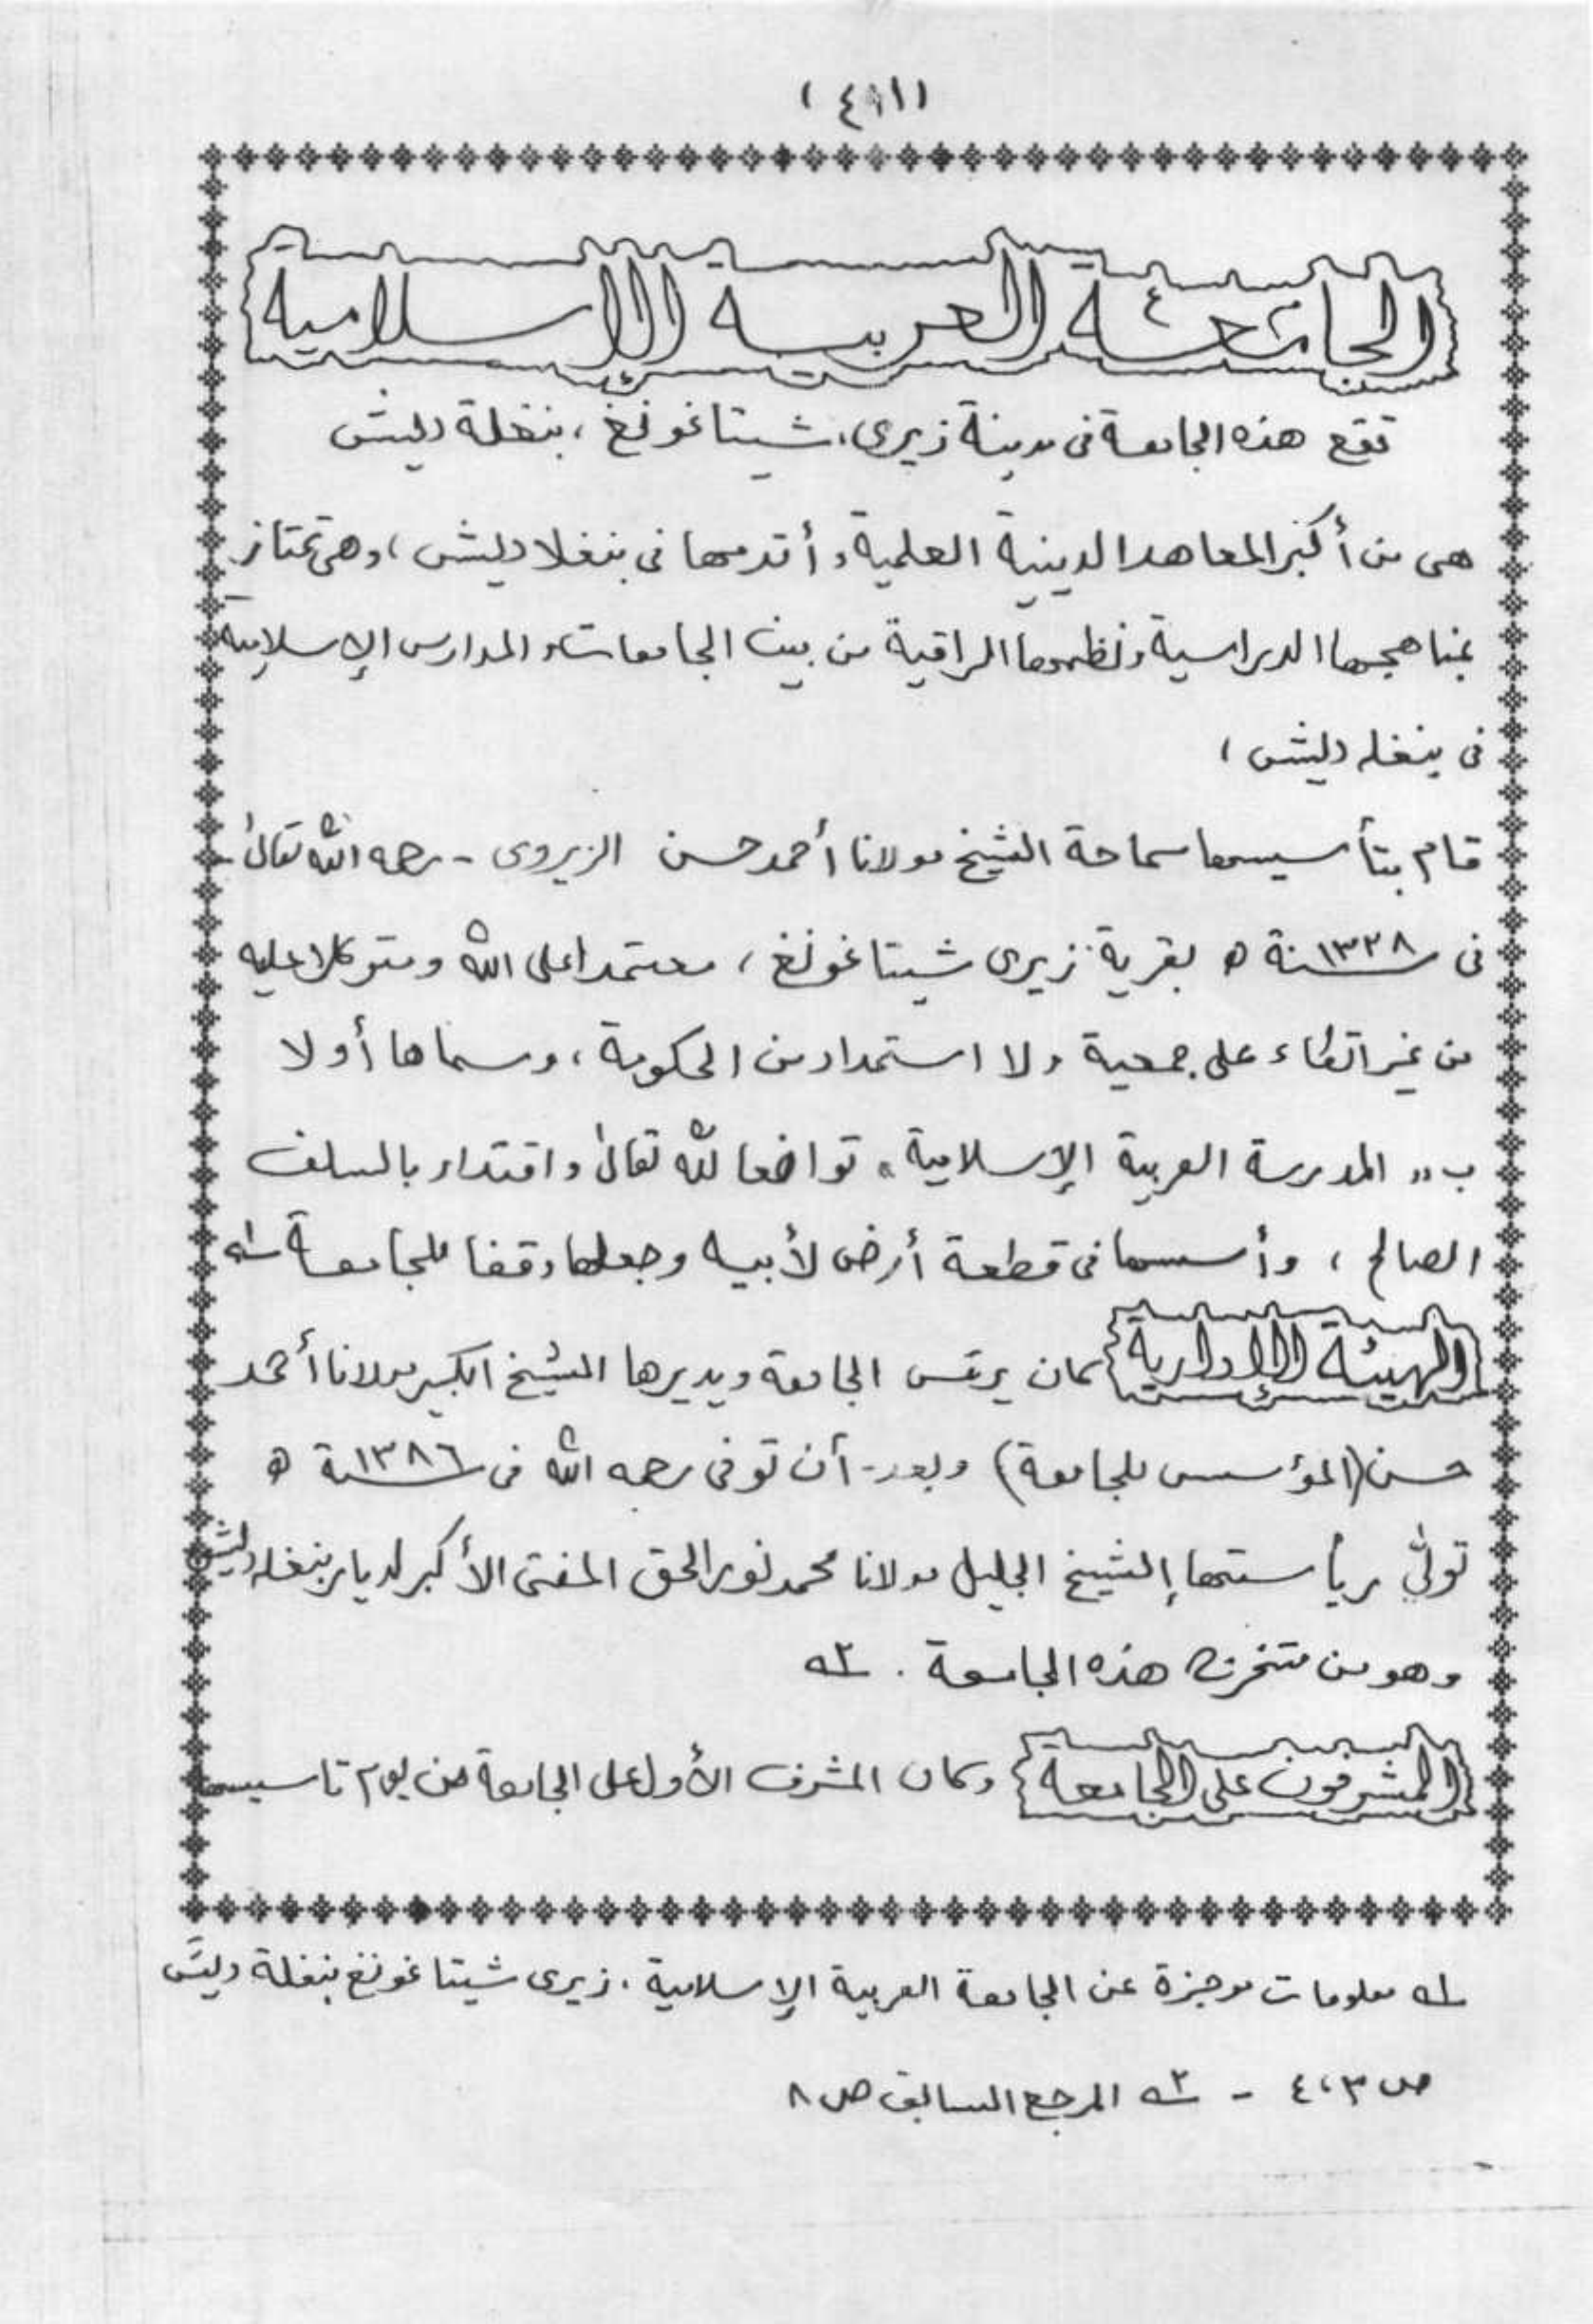 (٤١١)
الجامعة العربية الإسلامية
تقع هذه الجامعة فى مدينة زيرى، شيتاغونغ، بنغلة ديش
هى من أكبر المعاهد الدينية العلمية وأقدمها فى بنغلا ديش، وهى تمتاز
بمناهجها الدراسية ونظمها الراقية من بين الجامعات والمدارس الإسلامية
فى بنغله ديش،
قام بتأسيسها سماحة الشيخ مولانا أحمد حسن الزيروى - رحمه الله تعالىٰ -
فى سنة ١٣٣٨ ه بقرية زيرى شيتاغونغ، معتمدا على الله ومتوكلا عليه
من غير اتكاء على جمعية ولا استمداد من الحكومة، وسماها أولا
ب" المدرسة العربية الإسلامية" تواضعا لله تعالىٰ واقتداء بالسلف
الصالح، وأسسها فى قطعة أرض لأبيه وجعلها وقفا للجامعة له١
الهيئة الإدارية كان يرئس الجامعة ويديرها الشيخ الكبير مولانا أحمد
حسن (المؤسس للجامعة) وبعد- أن توفى رحمه الله فى سنة ١٣٨٦ ه
تولىٰ رياستها الشيخ الجليل مولانا محمد نور الحق المفتى الأكبر لديار بنغله ديش
وهو من متخرجى هذه الجامعة . ٢ه
المشرفون على الجامعة وكان المشرف الأول على الجامعة من يوم تاسيسها
١ه معلومات موجزة عن الجامعة العربية الإسلامية، زيرى شيتاغونغ بنغلة ديش
ص ٣،٤ - ٢ه المرجع السابق ص ٨